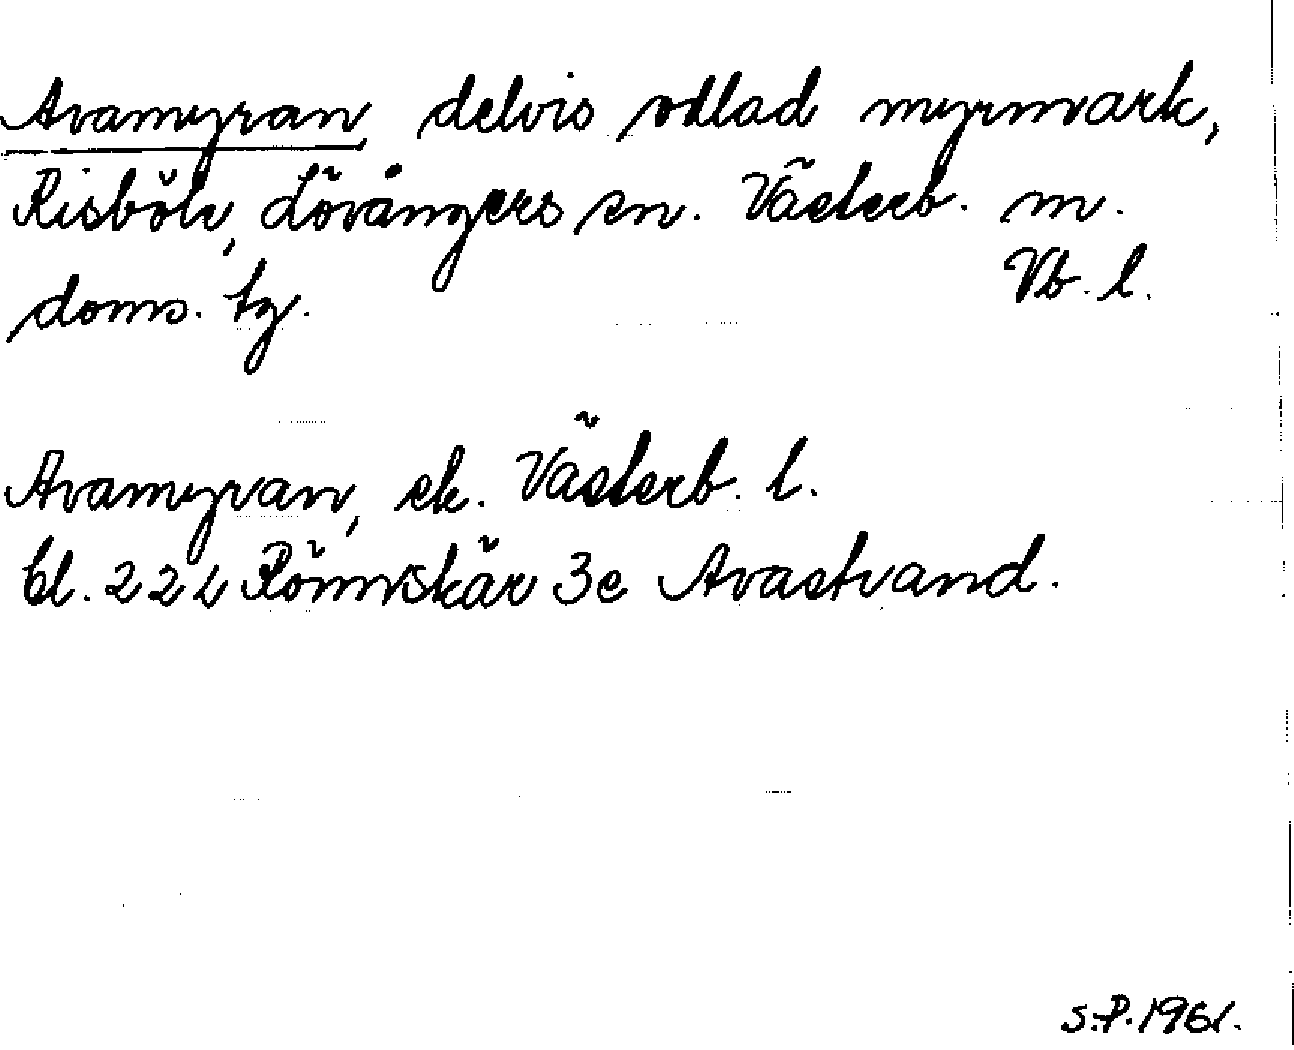 Avamyran, delvis odlad myrmark,
Risböle, Lövångers sn. Västerb. m.
doms. tg. Vb. l.
Avamyran, ek. Västerb. l.
bl. 22 L Rönnskär 3 e Avastrand.
S.P. 1961.